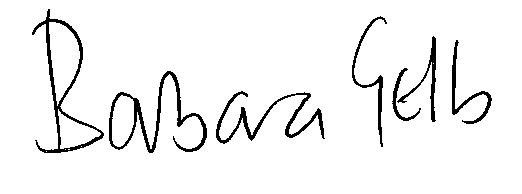 Barbara Gelb